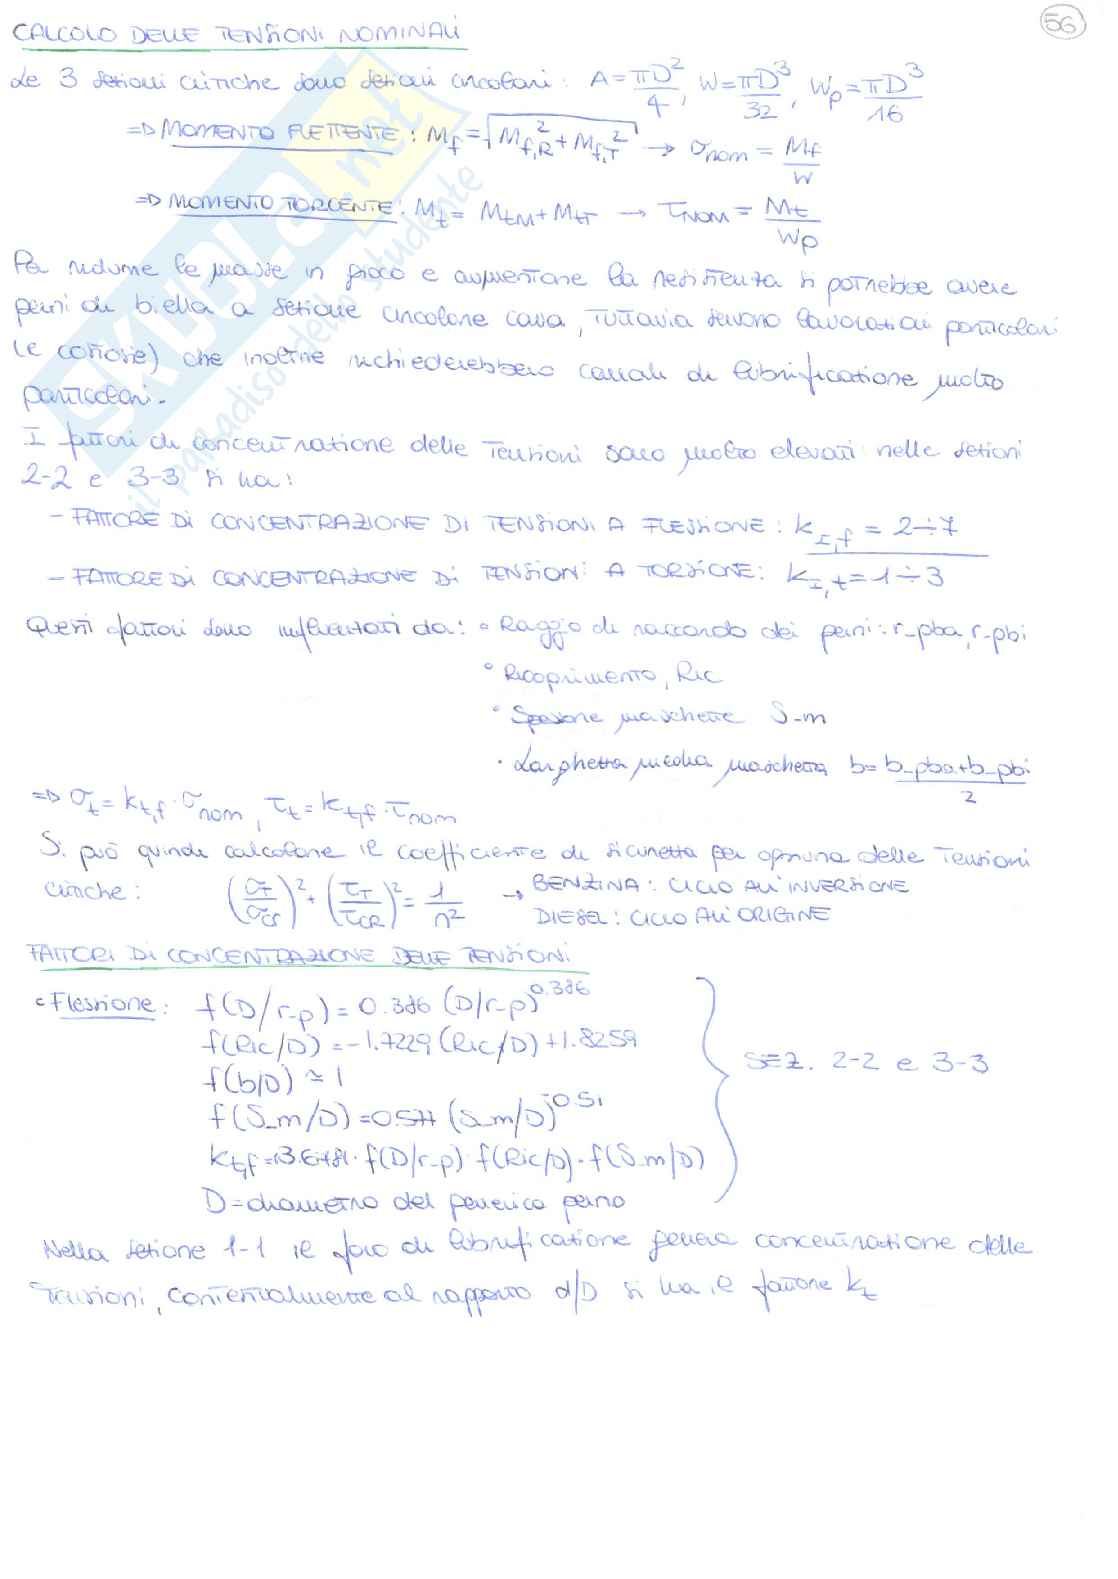 56
CALCOLO DELLE TENSIONI NOMINALI
Le 3 sezioni critiche sono sezioni circolari: A = πD²/4, W = πD³/32, Wp = πD³/16
=> MOMENTO FLETTENTE: Mf = √(Mf,R² + Mf,T²) → σnom = Mf/W
=> MOMENTO TORCENTE: Mt = MtM + MtT → τNOM = Mt/Wp
Per ridurre le masse in gioco e aumentare la resistenza si potrebbe avere
perni di biella a sezione circolare cava, tuttavia servono lavorazioni particolari
(e costose) che inoltre richiederebbero canali di lubrificazione molto
particolari.
I fattori di concentrazione delle tensioni sono molto elevati nelle sezioni
2-2 e 3-3 si ha:
- FATTORE DI CONCENTRAZIONE DI TENSIONI A FLESSIONE: kI,f = 2÷7
- FATTORE DI CONCENTRAZIONE DI TENSIONI A TORSIONE: kI,t = 1÷3
Questi fattori sono influenzati da: • Raggio di raccordo dei perni: r_pba, r_pbi
• Ricoprimento, Ric
• Spessore maschette S_m
• Larghezza media maschetta b = b_pba+b_pbi / 2
=> σt = kt,f · σnom, τt = kt,f · τnom
Si può quindi calcolare il coefficiente di sicurezza per ognuna delle tensioni
critiche: (σT/σCR)² + (τT/τCR)² = 1/n² → BENZINA: CICLO ALL'INVERSIONE
DIESEL: CICLO ALL'ORIGINE
FATTORI DI CONCENTRAZIONE DELLE TENSIONI
• Flessione: f(D/r_p) = 0.386 (D/r_p)^0.386
f(Ric/D) = -1.7229 (Ric/D) + 1.8259
f(b/D) ≃ 1
f(S_m/D) = 0.577 (S_m/D)^-0.51
kt,f = · f(D/r_p) · f(Ric/D) · f(S_m/D)
D = diametro del generico perno
SEZ. 2-2 e 3-3
Nella sezione 1-1 il foro di lubrificazione genera concentrazione delle
tensioni, contestualmente al rapporto d/D si ha il fattore kt
SKUOLA.net
il paradiso dello studente